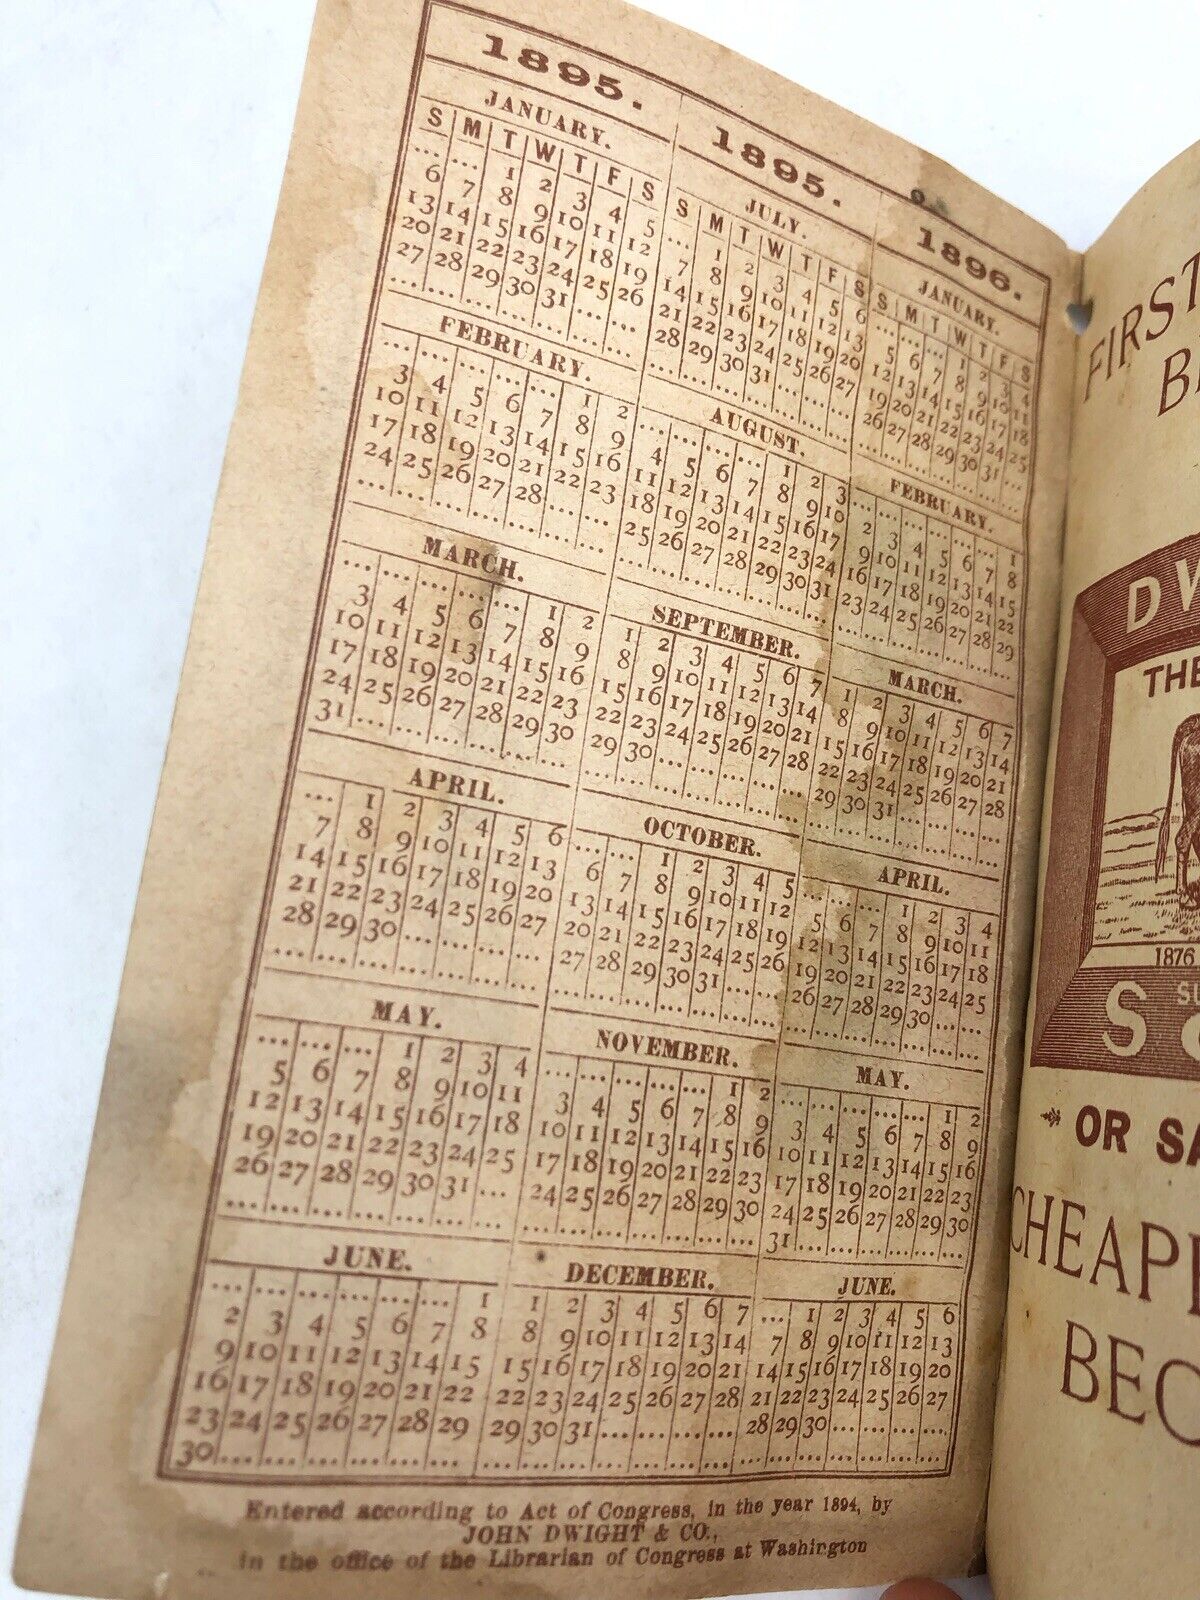 1895.
JANUARY.
S M T W T F S
... ... 1 2 3 4 5
6 7 8 9 10 11 12
13 14 15 16 17 18 19
20 21 22 23 24 25 26
27 28 29 30 31 ... ...
FEBRUARY.
... ... ... ... ... 1 2
3 4 5 6 7 8 9
10 11 12 13 14 15 16
17 18 19 20 21 22 23
24 25 26 27 28 ... ...
MARCH.
... ... ... ... ... 1 2
3 4 5 6 7 8 9
10 11 12 13 14 15 16
17 18 19 20 21 22 23
24 25 26 27 28 29 30
31 ... ... ... ... ... ...
APRIL.
... 1 2 3 4 5 6
7 8 9 10 11 12 13
14 15 16 17 18 19 20
21 22 23 24 25 26 27
28 29 30 ... ... ... ...
MAY.
... ... ... 1 2 3 4
5 6 7 8 9 10 11
12 13 14 15 16 17 18
19 20 21 22 23 24 25
26 27 28 29 30 31 ...
JUNE.
... ... ... ... ... ... 1
2 3 4 5 6 7 8
9 10 11 12 13 14 15
16 17 18 19 20 21 22
23 24 25 26 27 28 29
30 ... ... ... ... ... ...
1895.
JULY.
S M T W T F S
... 1 2 3 4 5 6
7 8 9 10 11 12 13
14 15 16 17 18 19 20
21 22 23 24 25 26 27
28 29 30 31 ... ... ...
AUGUST.
... ... ... ... 1 2 3
4 5 6 7 8 9 10
11 12 13 14 15 16 17
18 19 20 21 22 23 24
25 26 27 28 29 30 31
SEPTEMBER.
1 2 3 4 5 6 7
8 9 10 11 12 13 14
15 16 17 18 19 20 21
22 23 24 25 26 27 28
29 30 ... ... ... ... ...
OCTOBER.
... ... 1 2 3 4 5
6 7 8 9 10 11 12
13 14 15 16 17 18 19
20 21 22 23 24 25 26
27 28 29 30 31 ... ...
NOVEMBER.
... ... ... ... ... 1 2
3 4 5 6 7 8 9
10 11 12 13 14 15 16
17 18 19 20 21 22 23
24 25 26 27 28 29 30
DECEMBER.
1 2 3 4 5 6 7
8 9 10 11 12 13 14
15 16 17 18 19 20 21
22 23 24 25 26 27 28
29 30 31 ... ... ... ...
1896.
JANUARY.
S M T W T F S
... ... ... 1 2 3 4
5 6 7 8 9 10 11
12 13 14 15 16 17 18
19 20 21 22 23 24 25
26 27 28 29 30 31 ...
FEBRUARY.
... ... ... ... ... ... 1
2 3 4 5 6 7 8
9 10 11 12 13 14 15
16 17 18 19 20 21 22
23 24 25 26 27 28 29
MARCH.
1 2 3 4 5 6 7
8 9 10 11 12 13 14
15 16 17 18 19 20 21
22 23 24 25 26 27 28
29 30 31 ... ... ... ...
APRIL.
... ... ... 1 2 3 4
5 6 7 8 9 10 11
12 13 14 15 16 17 18
19 20 21 22 23 24 25
26 27 28 29 30 ... ...
MAY.
... ... ... ... ... 1 2
3 4 5 6 7 8 9
10 11 12 13 14 15 16
17 18 19 20 21 22 23
24 25 26 27 28 29 30
31 ... ... ... ... ... ...
JUNE.
... 1 2 3 4 5 6
7 8 9 10 11 12 13
14 15 16 17 18 19 20
21 22 23 24 25 26 27
28 29 30 ... ... ... ...
Entered according to Act of Congress, in the year 1894, by
JOHN DWIGHT & CO.,
in the office of the Librarian of Congress at Washington
FIRST
B
DW
THE
1876
S
OR SA
CHEAP
BEC